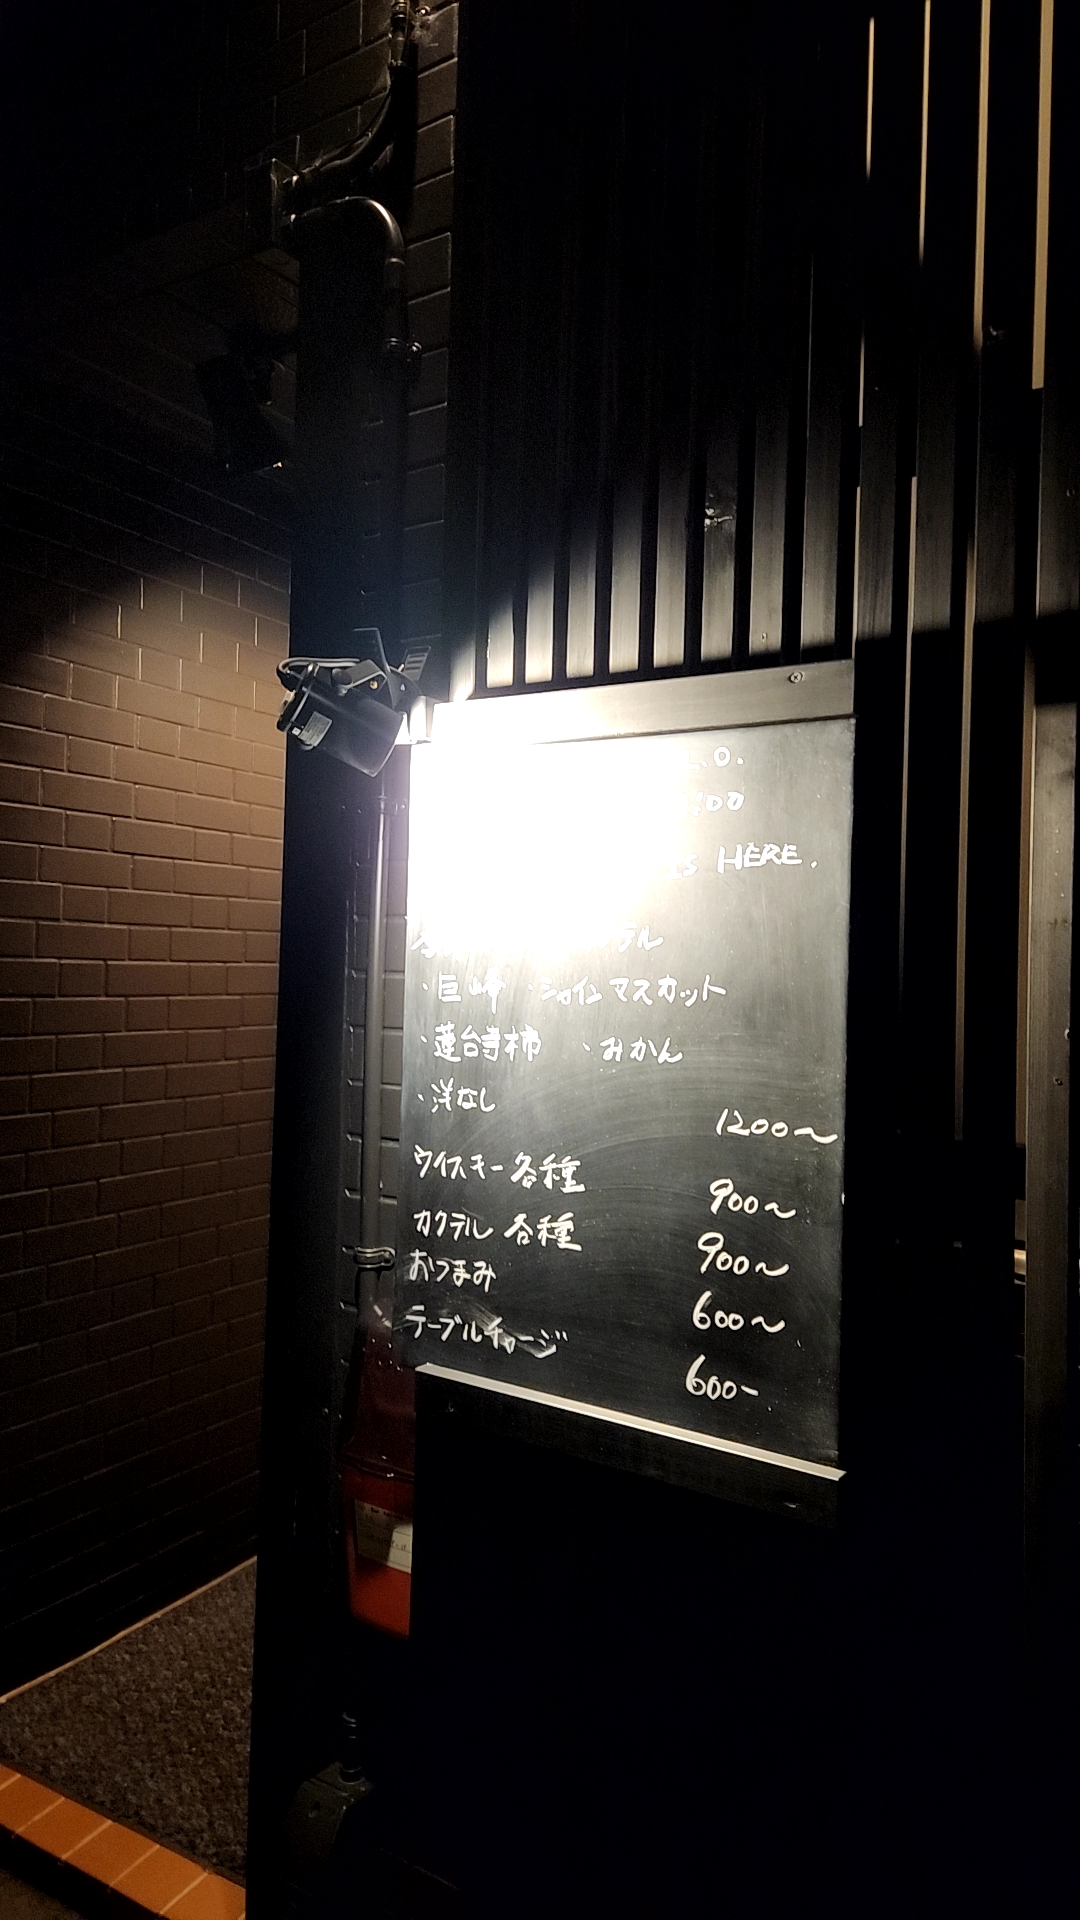 L.O.
:00
IS HERE.
テル
・巨峰 ・シャインマスカット
・蓮台寺柿 ・みかん
・洋なし
1200～
ウイスキー各種 900～
カクテル 各種 900～
おつまみ 600～
テーブルチャージ 600-